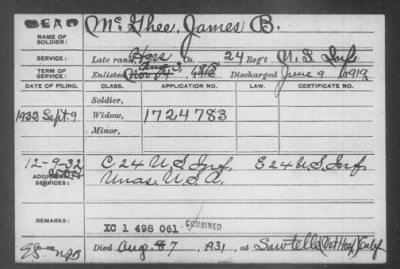 DEAD
NAME OF SOLDIER: McGhee, James B.
SERVICE: Late rank, Hqrs Co. 24 Reg't U.S. Inf.
TERM OF SERVICE: Enlisted Nov 1913 Discharged June 9, 1919
DATE OF FILING. CLASS. APPLICATION NO. CERTIFICATE NO.
Soldier,
1932 Sept. 9 Widow, 1724783
Minor,
12-9-32 C 24 U.S. Inf. E 24 U.S. Inf.
ADDITIONAL SERVICES: Unas. U.S.A.
REMARKS: XC 1 498 061 COMBINED
Died Aug. 7, 1931, at Sawtelle Calif